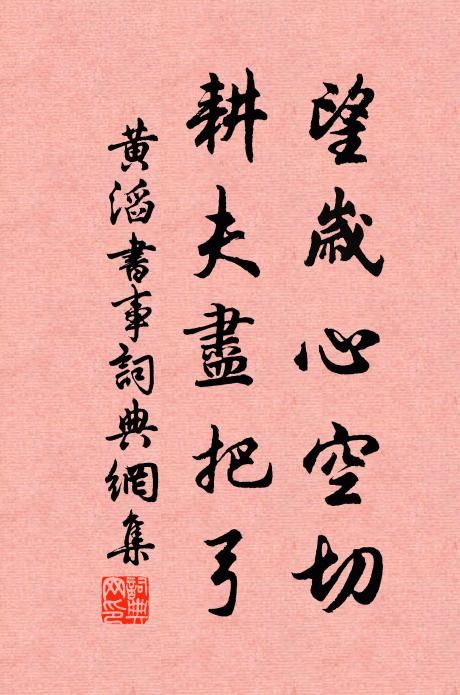 望歲心空切
耕夫盡把弓
黃滔書事詞典網集
詞典网印